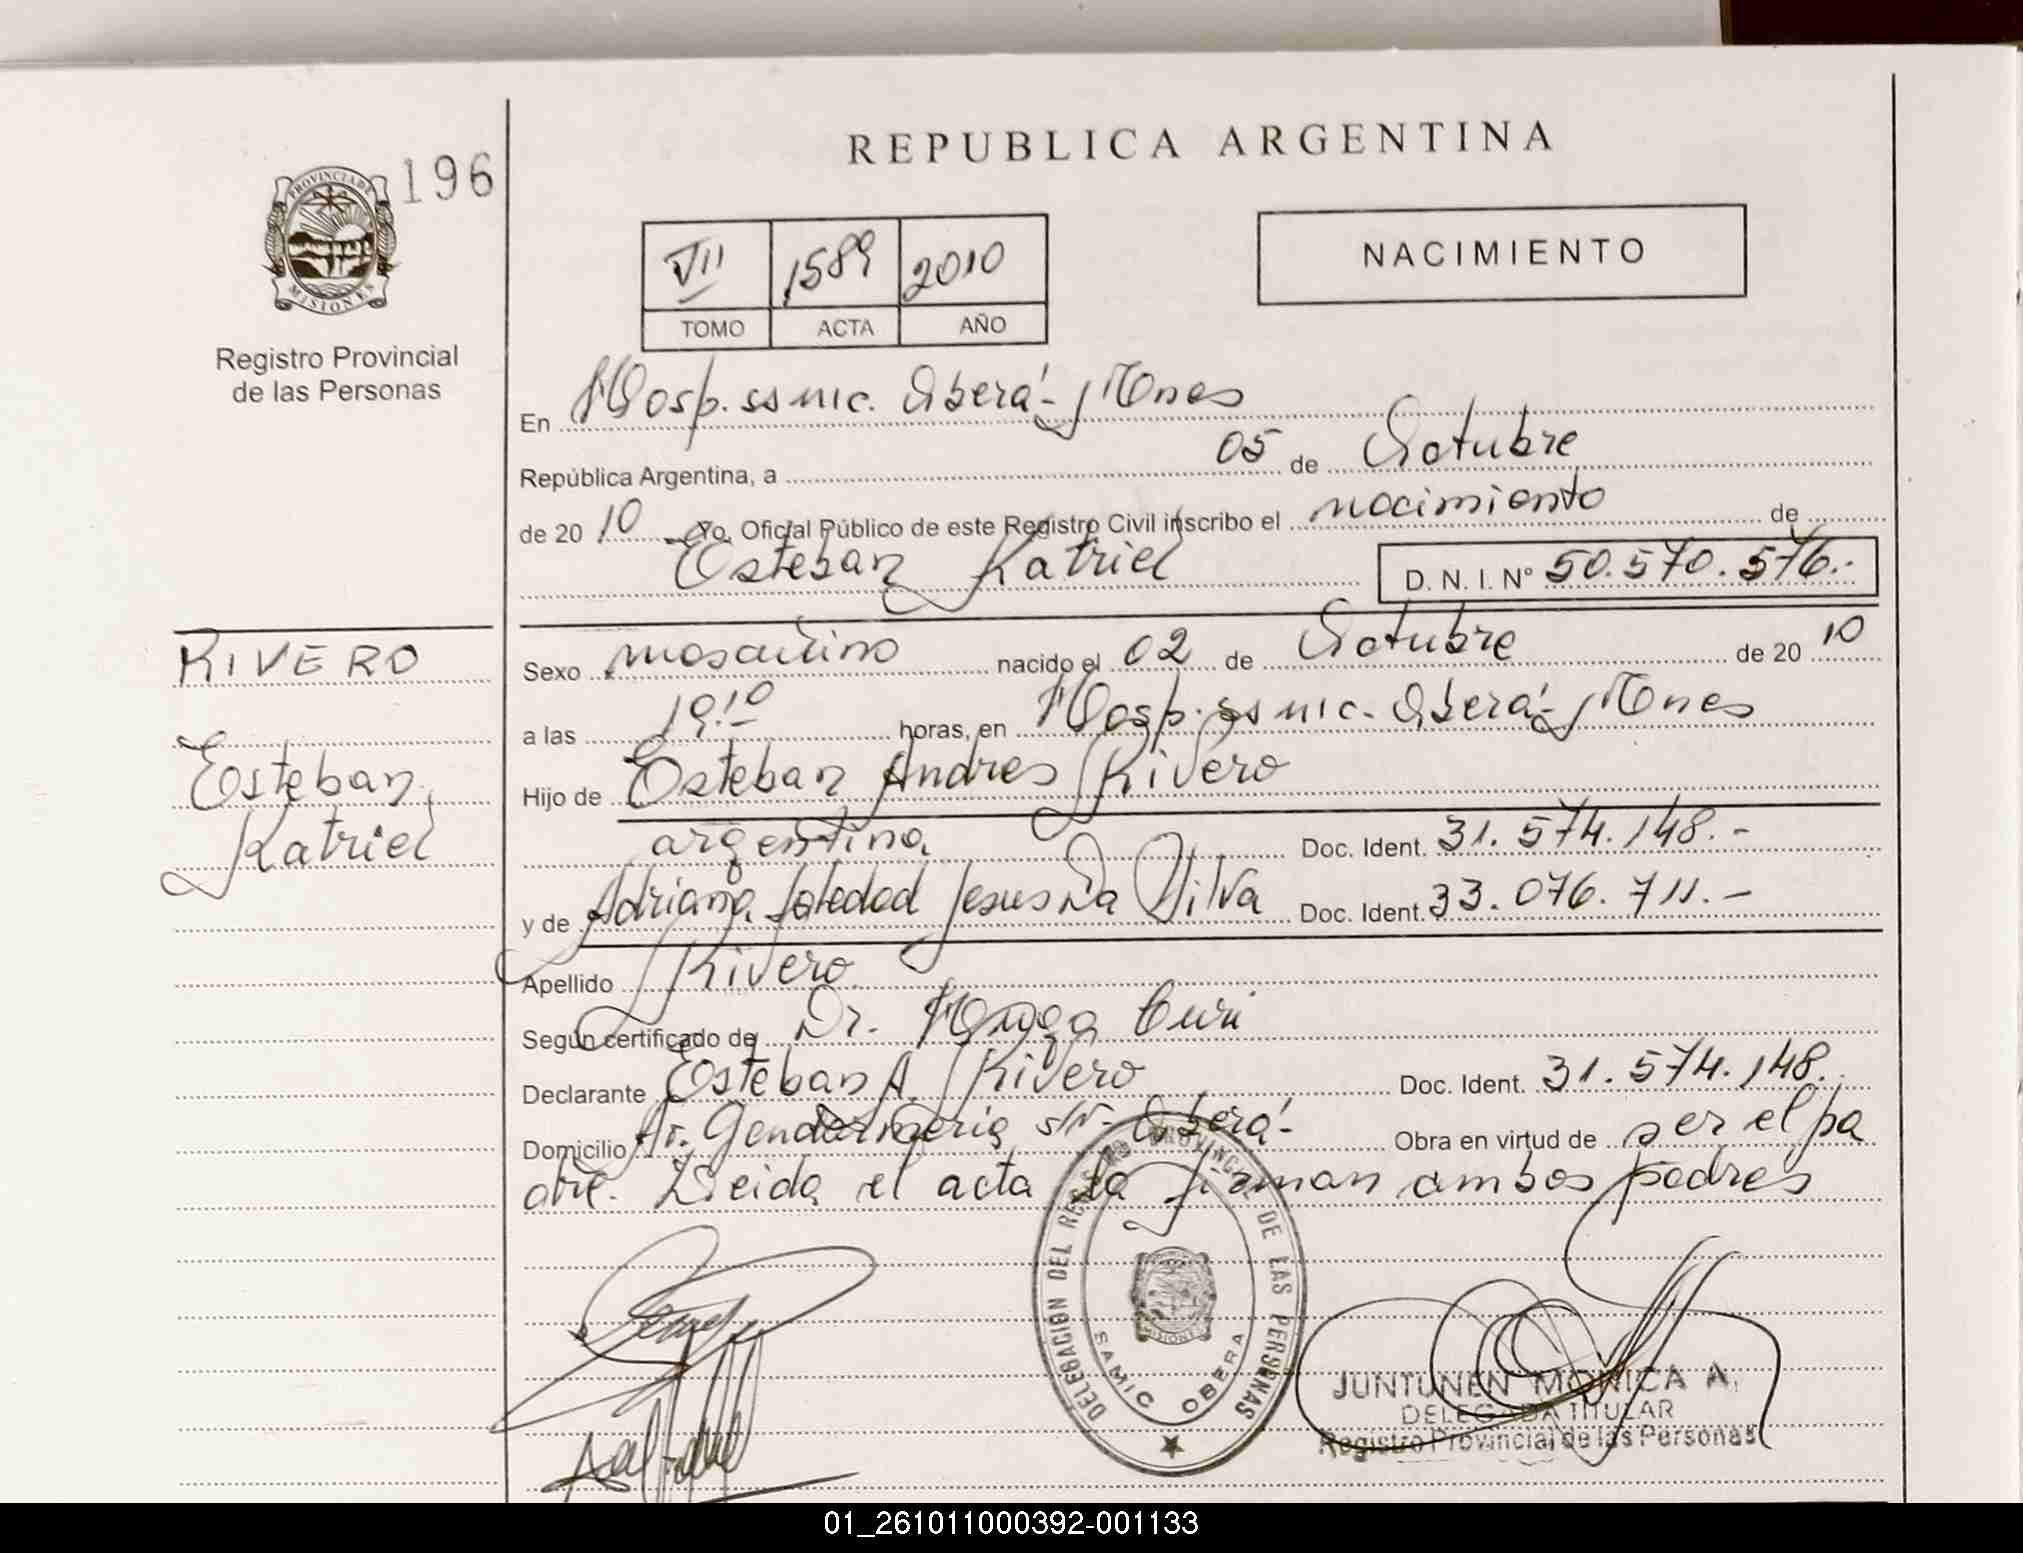 REPUBLICA ARGENTINA
PROVINCIA DE
MISIONES
196
Registro Provincial
de las Personas
VII 1589 2010
TOMO ACTA AÑO
NACIMIENTO
En Hosp. ssmic. Oberá - Mnes
República Argentina, a 05 de Octubre
de 20 10 Yo, Oficial Público de este Registro Civil inscribo el nacimiento de
Esteban Katriel D. N. I. N° 50.570.576.-
RIVERO
Esteban
Katriel
Sexo masculino nacido el 02 de Octubre de 20 10
a las 19.10 horas, en Hosp. ssmic. Oberá - Mnes
Hijo de Esteban Andres Rivero
argentina Doc. Ident. 31.574.148.-
y de Adriana Soledad Jesus Da Silva Doc. Ident. 33.076.711.-
Apellido Rivero
Según certificado de Dr. Curi
Declarante Esteban A. Rivero Doc. Ident. 31.574.148.
Domicilio Av. Gendarmeria s/n - Oberá - Obra en virtud de ser el pa
dre. Leida el acta la firman ambos padres
DELEGACION DEL REGISTRO PROVINCIAL DE LAS PERSONAS
MISIONES
SAMIC OBERA
JUNTUNEN MONICA A.
DELEGADA TITULAR
Registro Provincial de las Personas
01_261011000392-001133